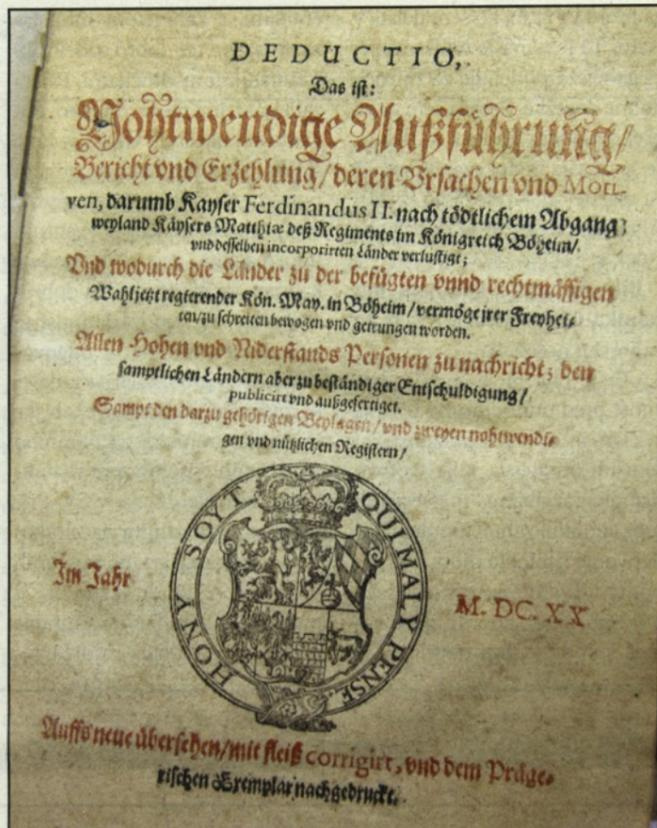 DEDUCTIO,
Das ist:
Nohtwendige Außführung/
Bericht vnd Erzehlung/deren Vrsachen vnd Moti-
ven, darumb Kayser Ferdinandus II. nach tödtlichem Abgang
weyland Käysers Matthiæ deß Regiments im Königreich Böheim/
vnd desselben incorporirten Länder verlustigt;
Vnd wodurch die Länder zu der befügten vnnd rechtmässigen
Wahl jetzt regierender Kön. May. in Böheim/vermöge jrer Freyhei-
ten/zu schreiten bewogen vnd getrungen worden.
Allen Hohen vnd Niderstands Personen zu nachricht; den
samptlichen Ländern aber zu beständiger Entschuldigung/
publicirt vnd außgefertiget.
Sampt den darzu gehörigen Beylagen/vnd zweyen nohtwendi-
gen vnd nützlichen Registern/
HONY SOYT QUI MAL Y PENSE
Im Jahr
M. DC. XX
Auffs neue übersehen/mit fleiß corrigirt, vnd dem Präge-
rischen Exemplar nachgedruckt.